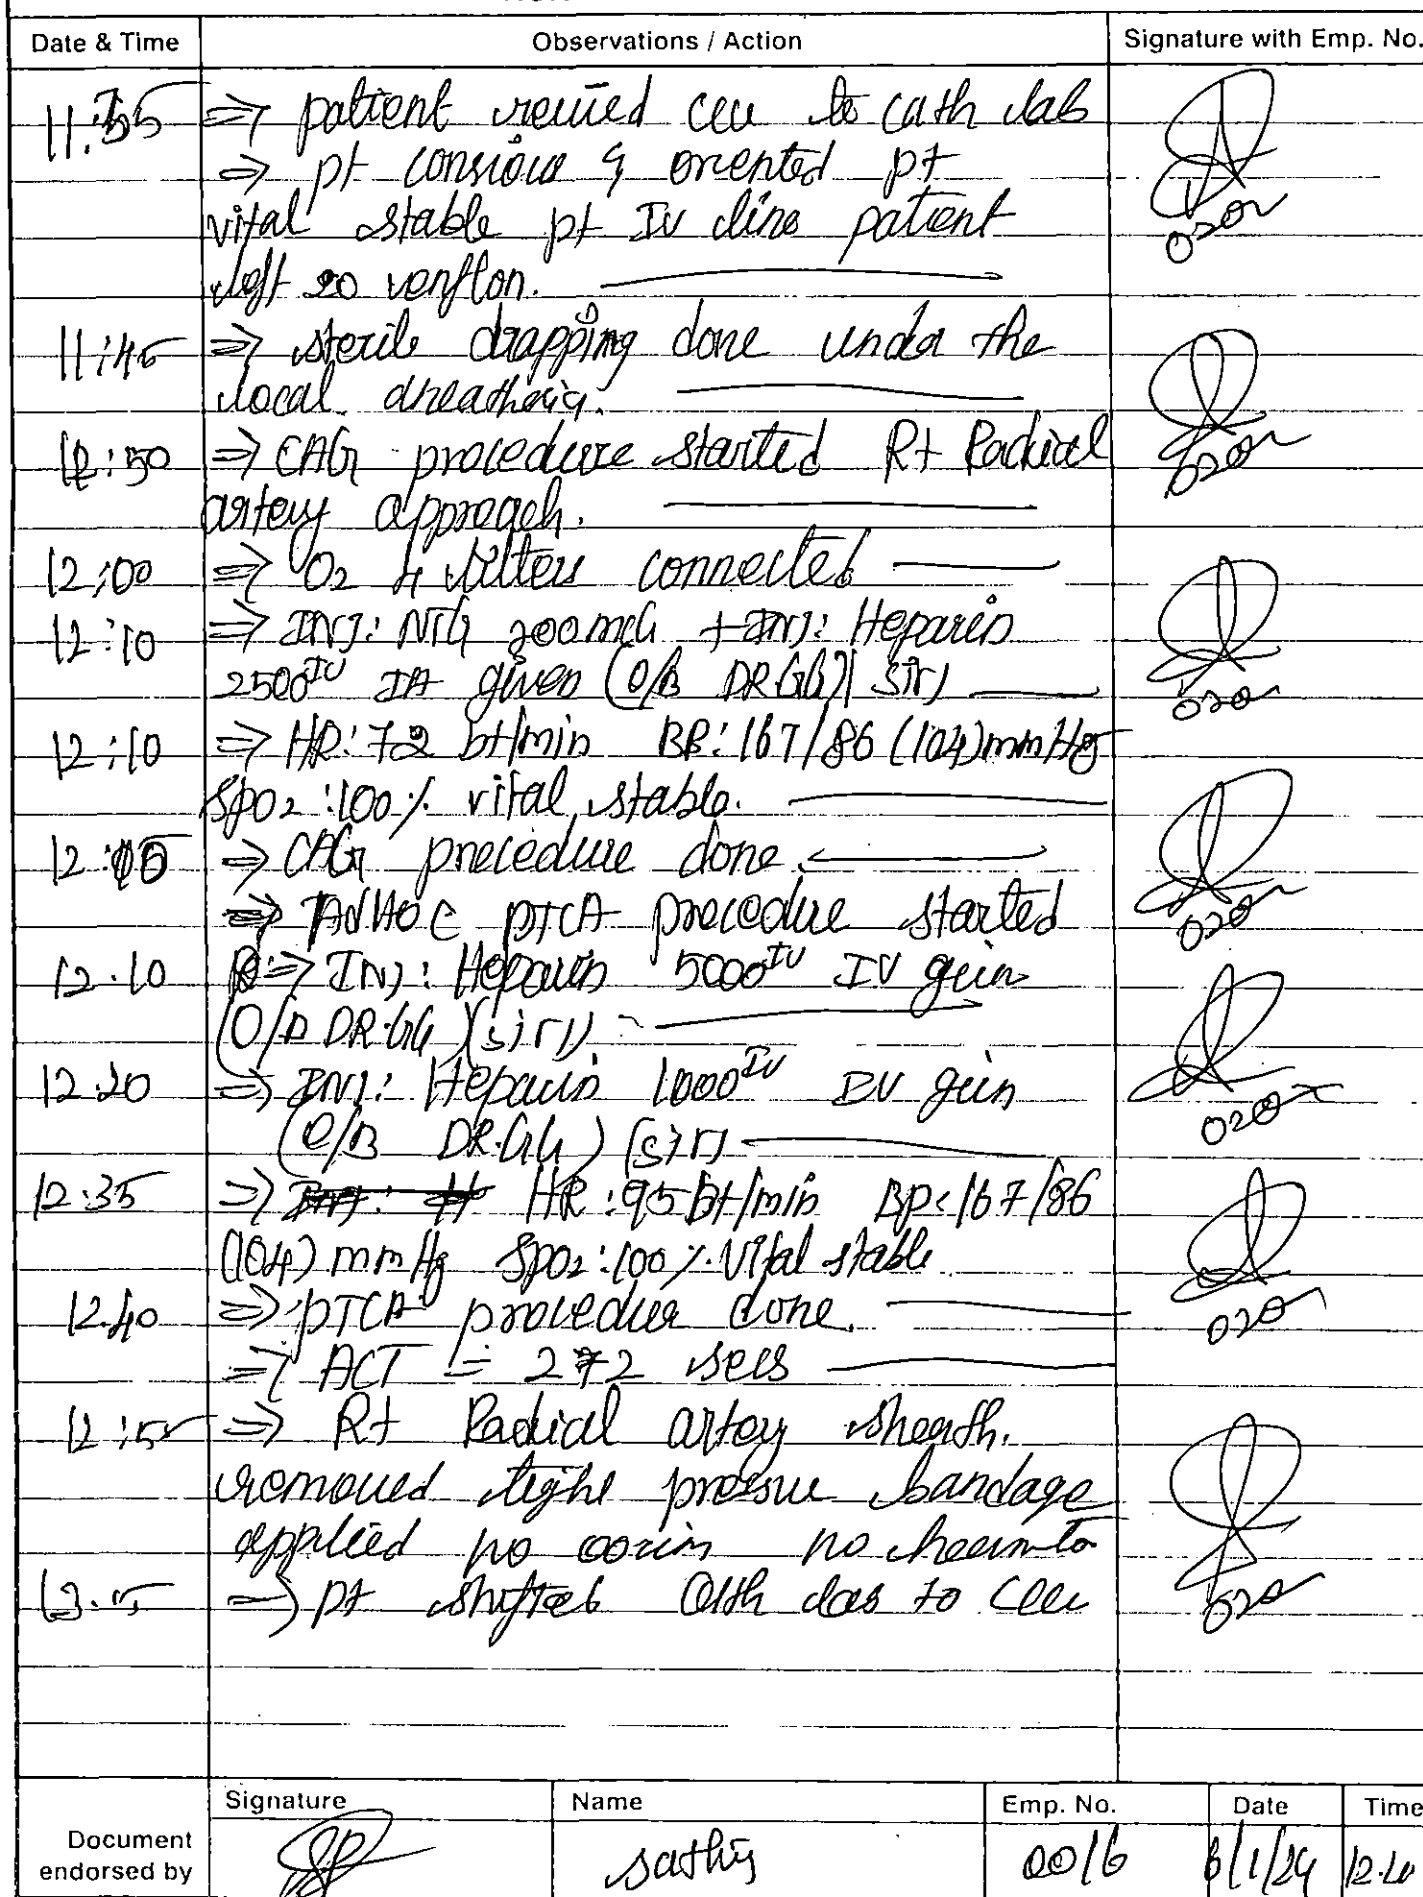 Date & Time Observations / Action Signature with Emp. No.
11:35 => patient recived ccu to cath lab
=> pt consious & oriented pt
vital stable pt IV line patient
left 20 venflon.
020
11:45 => sterile drapping done under the
local
12:50 => CAG procedure started Rt Radial
artery approach.
020
12:00 => O2 4 litters connected
12:10 => INJ: NTG 200mcG + INJ: Heparin
2500IU IA given (O/B DR.GG) sir)
020
12:10 => HR: 72 bt/min BP: 167/86 (104) mmHg
SPO2 :100% vital stable.
12: => CAG precedure done.
=> ADHOC PTCA procedue started
020
12.10 => INJ: Heparin 5000IU IV gein
(O/B DR.GG) (sir)
12.20 => INJ: Heparin 1000IU IV gein
(O/B DR.GG) (sir)
020
12:35 => HR :95 bt/min BP: 167/86
(104) mmHg SPO2 :100%. Vital stable
12.40 => PTCA procedue done.
020
=> ACT = 272 secs
12:55 => Rt Radial artery sheath.
removed tight pressue bandage
applied no oozin no heamto
=> pt shifted Cath lab to ccu
020
Signature Name Emp. No. Date Time
Document
endorsed by sathis 0016 6/1/24 12.40